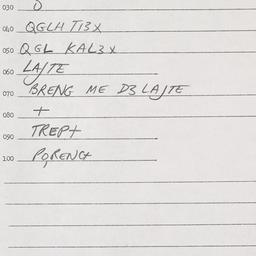 030 O
040 QGLH TI3X
050 QGL KAL3X
060 LAJTE
070 BRENG ME D3 LAJTE
080 +
090 TREP+
100 PQRENC+